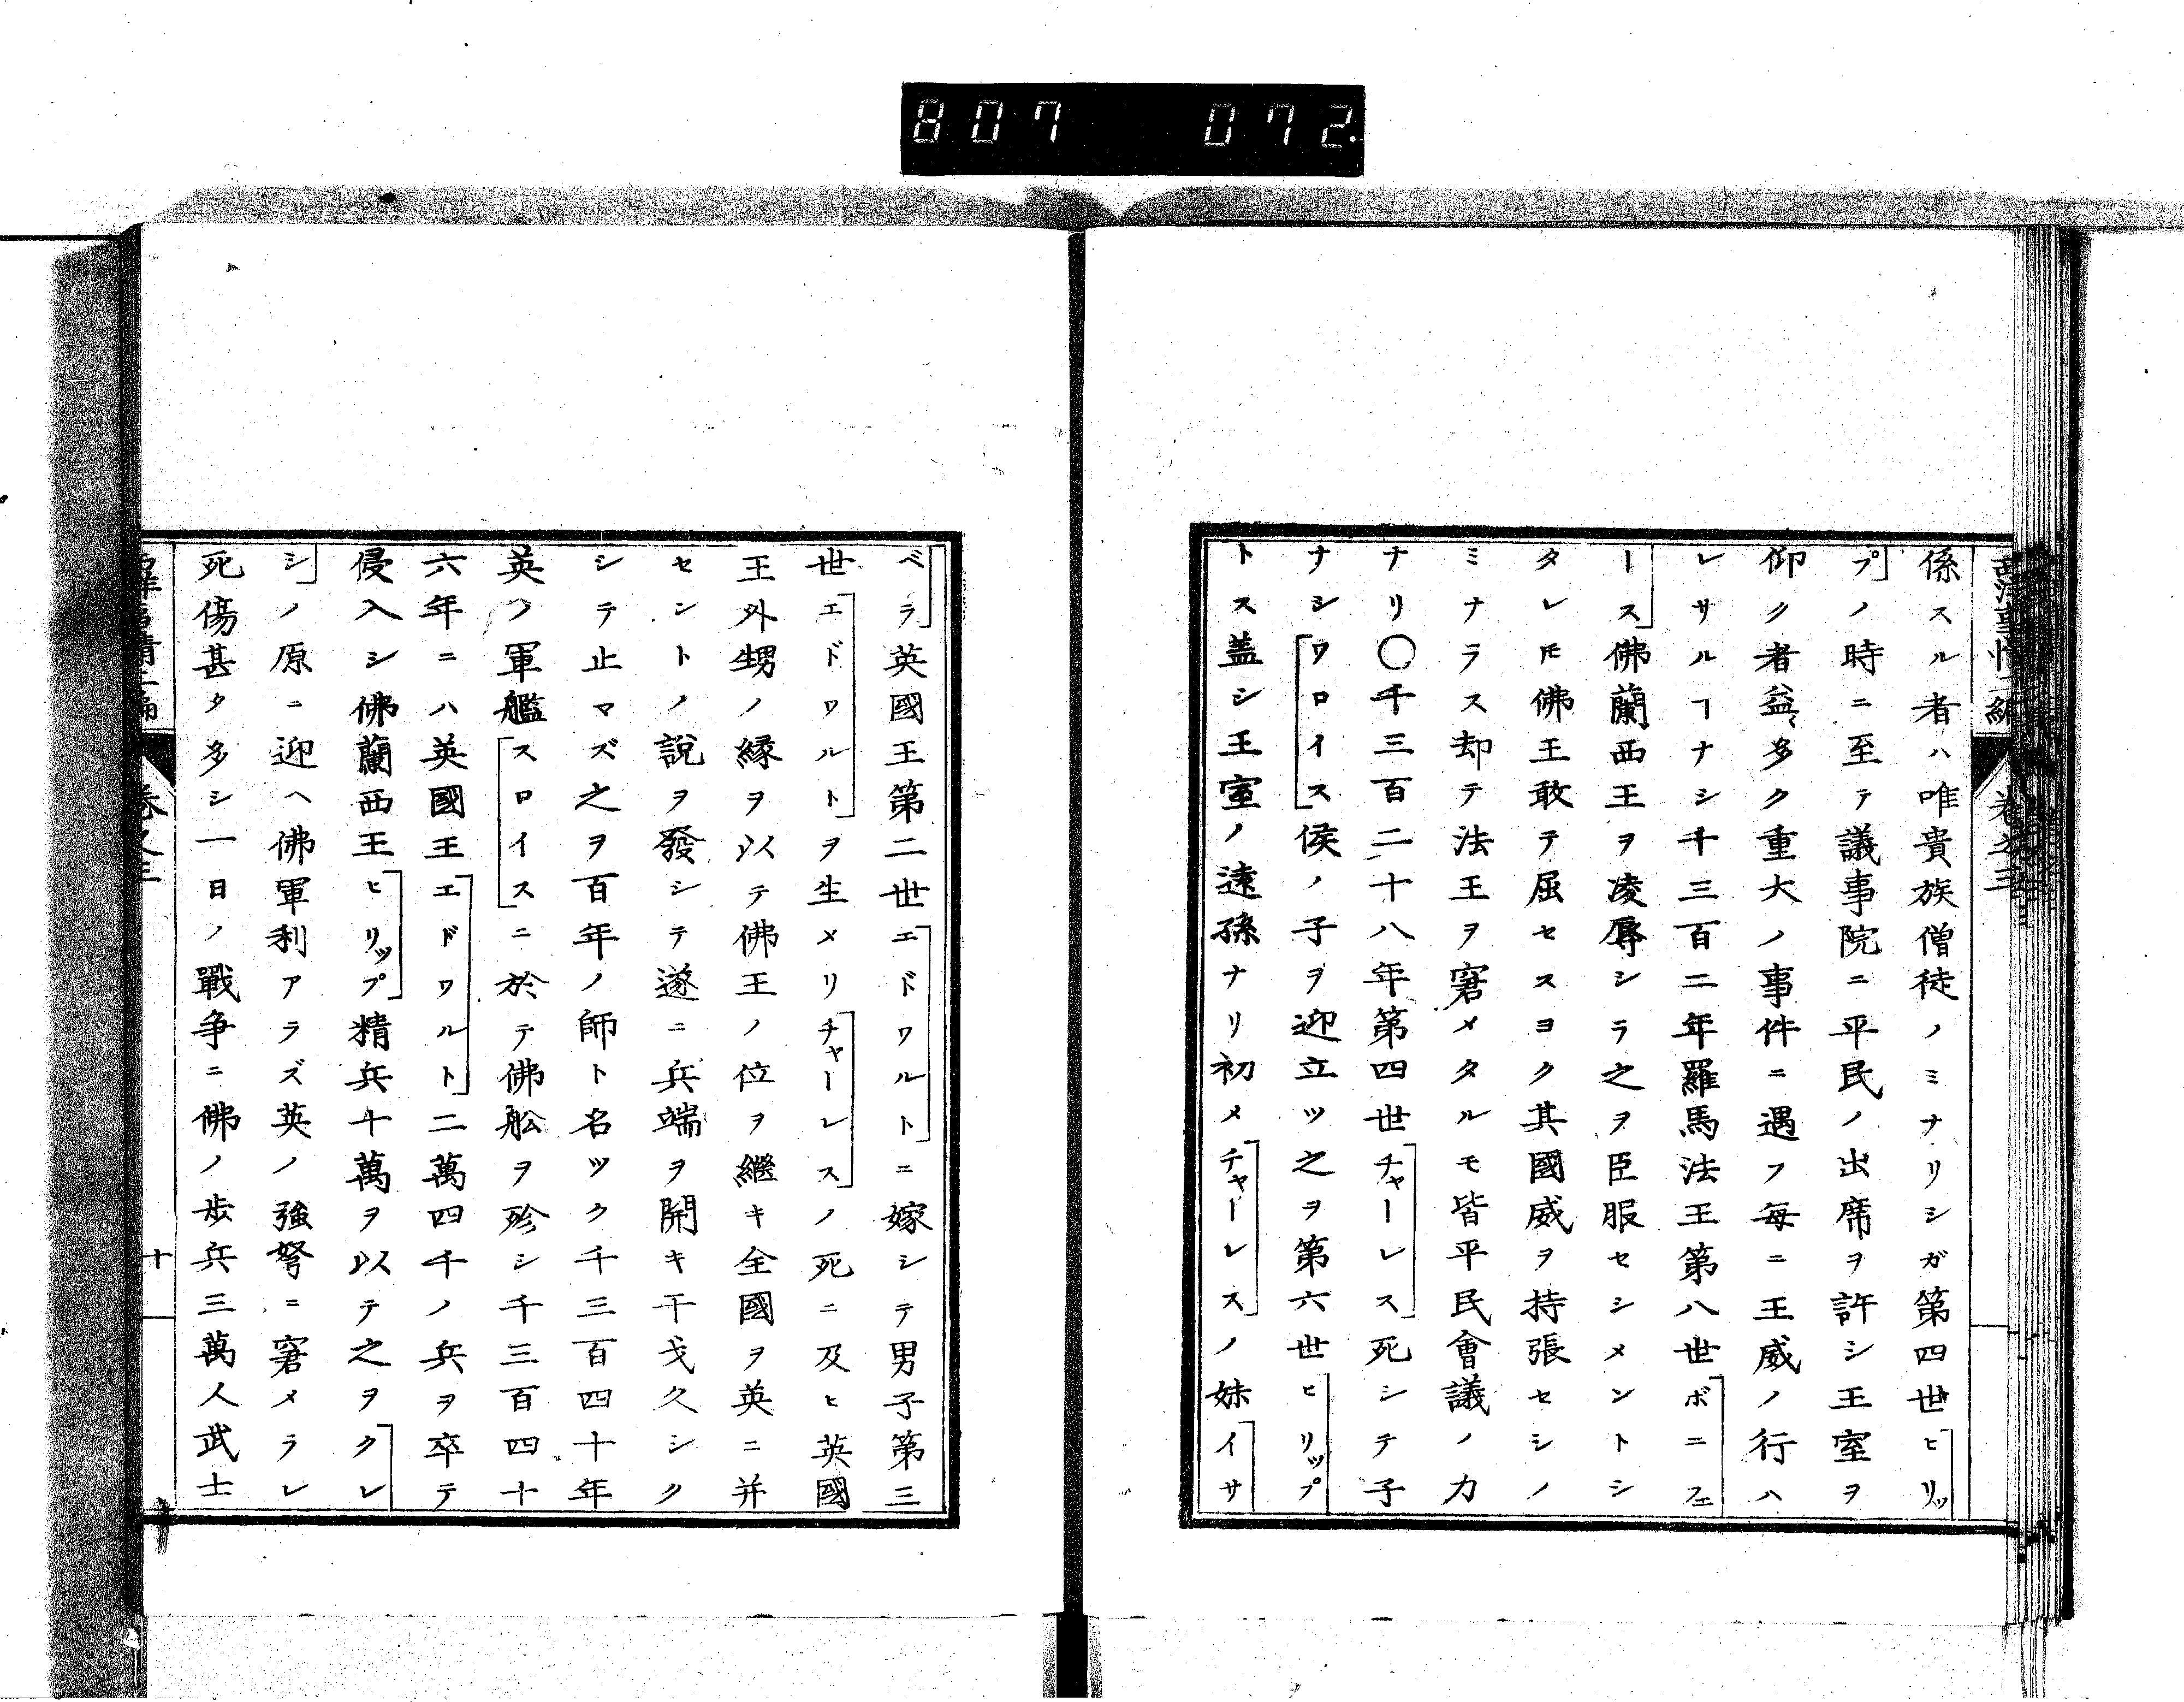 807 072
西洋事情二編 卷之三
係スル者ハ唯貴族僧徒ノミナリシガ第四世「ヒリッ
プ」ノ時ニ至テ議事院ニ平民ノ出席ヲ許シ王室ヲ
仰ク者益〻多ク重大ノ事件ニ遇フ毎ニ王威ノ行ハ
レサルヿナシ千三百二年羅馬法王第八世「ボニフェ
ース」佛蘭西王ヲ凌辱シラ之ヲ臣服セシメントシ
タレ𪜈佛王敢テ屈セスヨク其國威ヲ持張セシノ
ミナラス却テ法王ヲ窘メタルモ皆平民會議ノ力
ナリ〇千三百二十八年第四世「チャーレス」死シテ子
ナシ「ワロイス」侯ノ子ヲ迎立ツ之ヲ第六世「ヒリップ」
トス蓋シ王室ノ遠孫ナリ初メ「チャーレス」ノ妹「イサ
ベラ」英國王第二世「エドワルト」ニ嫁シテ男子第三
世「エドワルト」ヲ生メリ「チャーレス」ノ死ニ及ヒ英國
王外甥ノ縁ヲ以テ佛王ノ位ヲ繼キ全國ヲ英ニ并
セントノ説ヲ發シテ遂ニ兵端ヲ開キ干戈久シク
シテ止マズ之ヲ百年ノ師ト名ツク千三百四十年
英ノ軍艦「スロイス」ニ於テ佛舩ヲ殄シ千三百四十
六年ニハ英國王「エドワルト」二萬四千ノ兵ヲ卒テ
侵入シ佛蘭西王「ヒリップ」精兵十萬ヲ以テ之ヲ「クレ
シ」ノ原ニ迎ヘ佛軍利アラズ英ノ強弩ニ窘メラレ
死傷甚タ多シ一日ノ戰争ニ佛ノ歩兵三萬人武士
西洋事情二編 卷之三 十